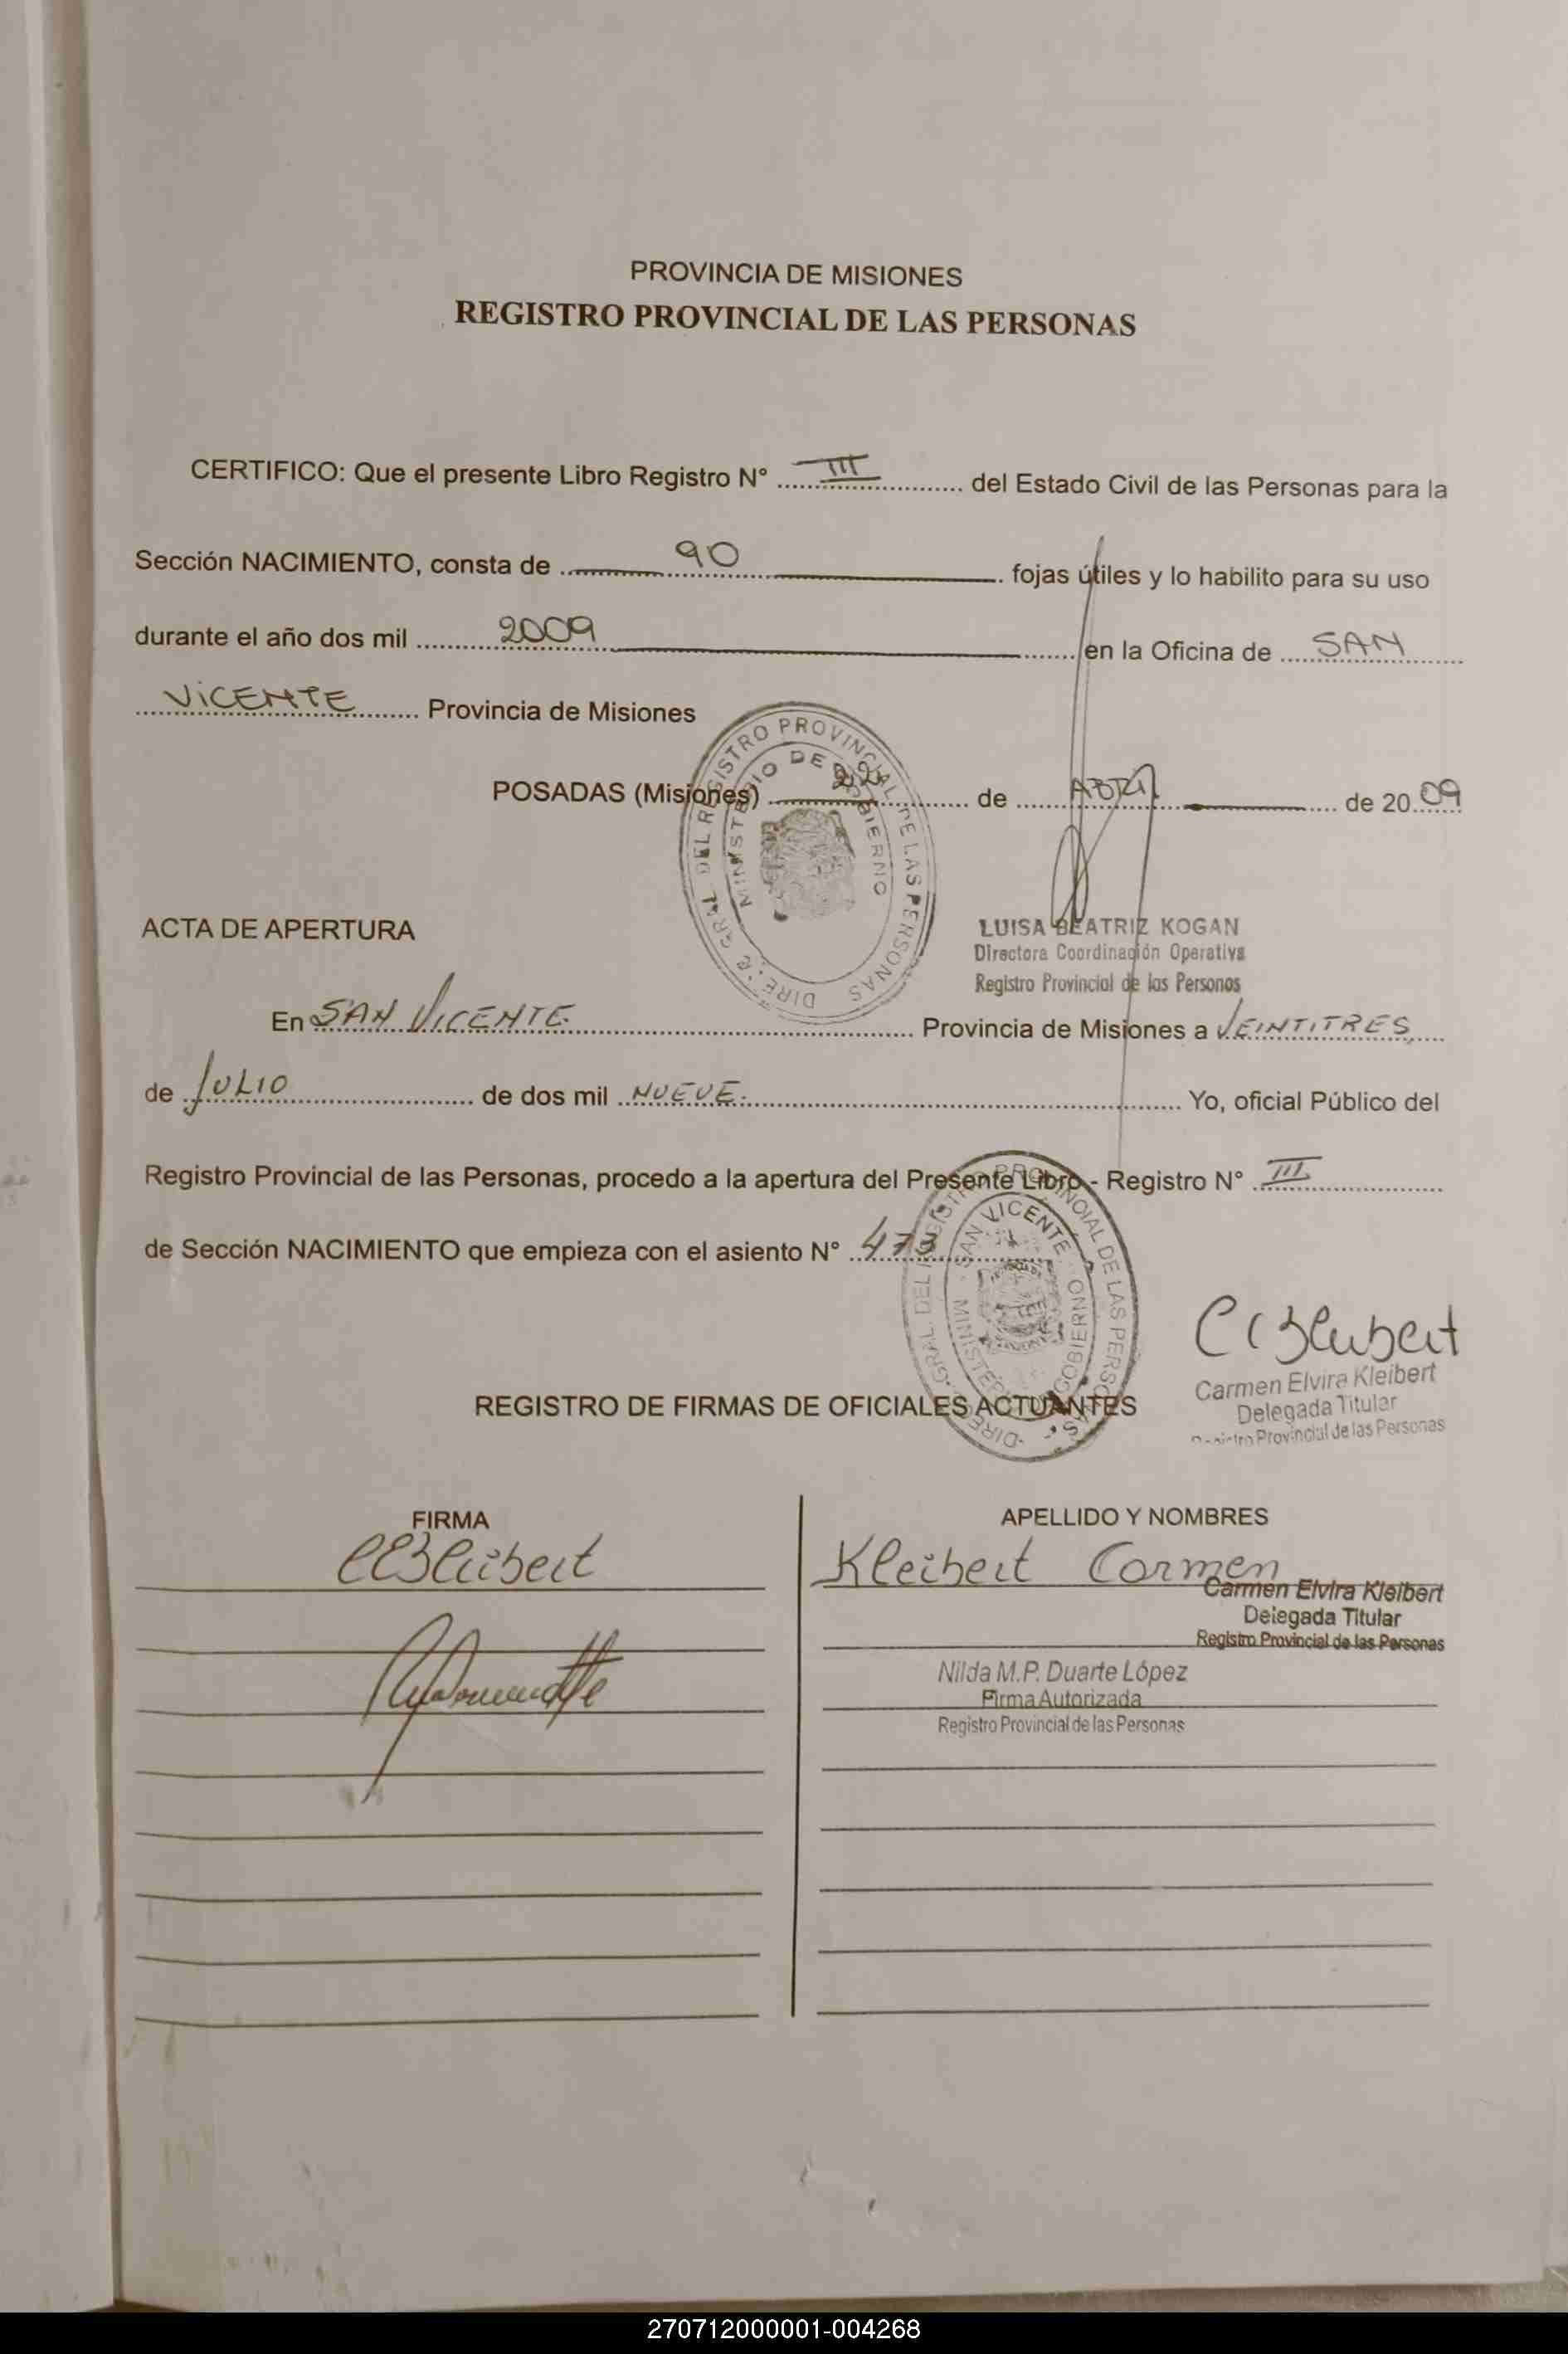 PROVINCIA DE MISIONES
REGISTRO PROVINCIAL DE LAS PERSONAS
CERTIFICO: Que el presente Libro Registro N° III del Estado Civil de las Personas para la
Sección NACIMIENTO, consta de 90 fojas útiles y lo habilito para su uso
durante el año dos mil 2009 en la Oficina de SAN
VICENTE Provincia de Misiones
POSADAS (Misiones) de ABRIL de 2009
DIRECC. GRAL. DEL REGISTRO PROVINCIAL DE LAS PERSONAS
MINISTERIO DE GOBIERNO
LUISA BEATRIZ KOGAN
Directora Coordinación Operativa
Registro Provincial de las Personas
ACTA DE APERTURA
En SAN VICENTE Provincia de Misiones a VEINTITRES
de JULIO de dos mil NUEVE. Yo, oficial Público del
Registro Provincial de las Personas, procedo a la apertura del Presente Libro - Registro N° III
de Sección NACIMIENTO que empieza con el asiento N° 473
DIREC. GRAL. DEL REGISTRO PROVINCIAL DE LAS PERSONAS
SAN VICENTE
MINISTERIO DE GOBIERNO
Carmen Elvira Kleibert
Delegada Titular
Registro Provincial de las Personas
REGISTRO DE FIRMAS DE OFICIALES ACTUANTES
FIRMA
APELLIDO Y NOMBRES
Kleibert Carmen
Carmen Elvira Kleibert
Delegada Titular
Registro Provincial de las Personas
Nilda M.P. Duarte López
Firma Autorizada
Registro Provincial de las Personas
270712000001-004268